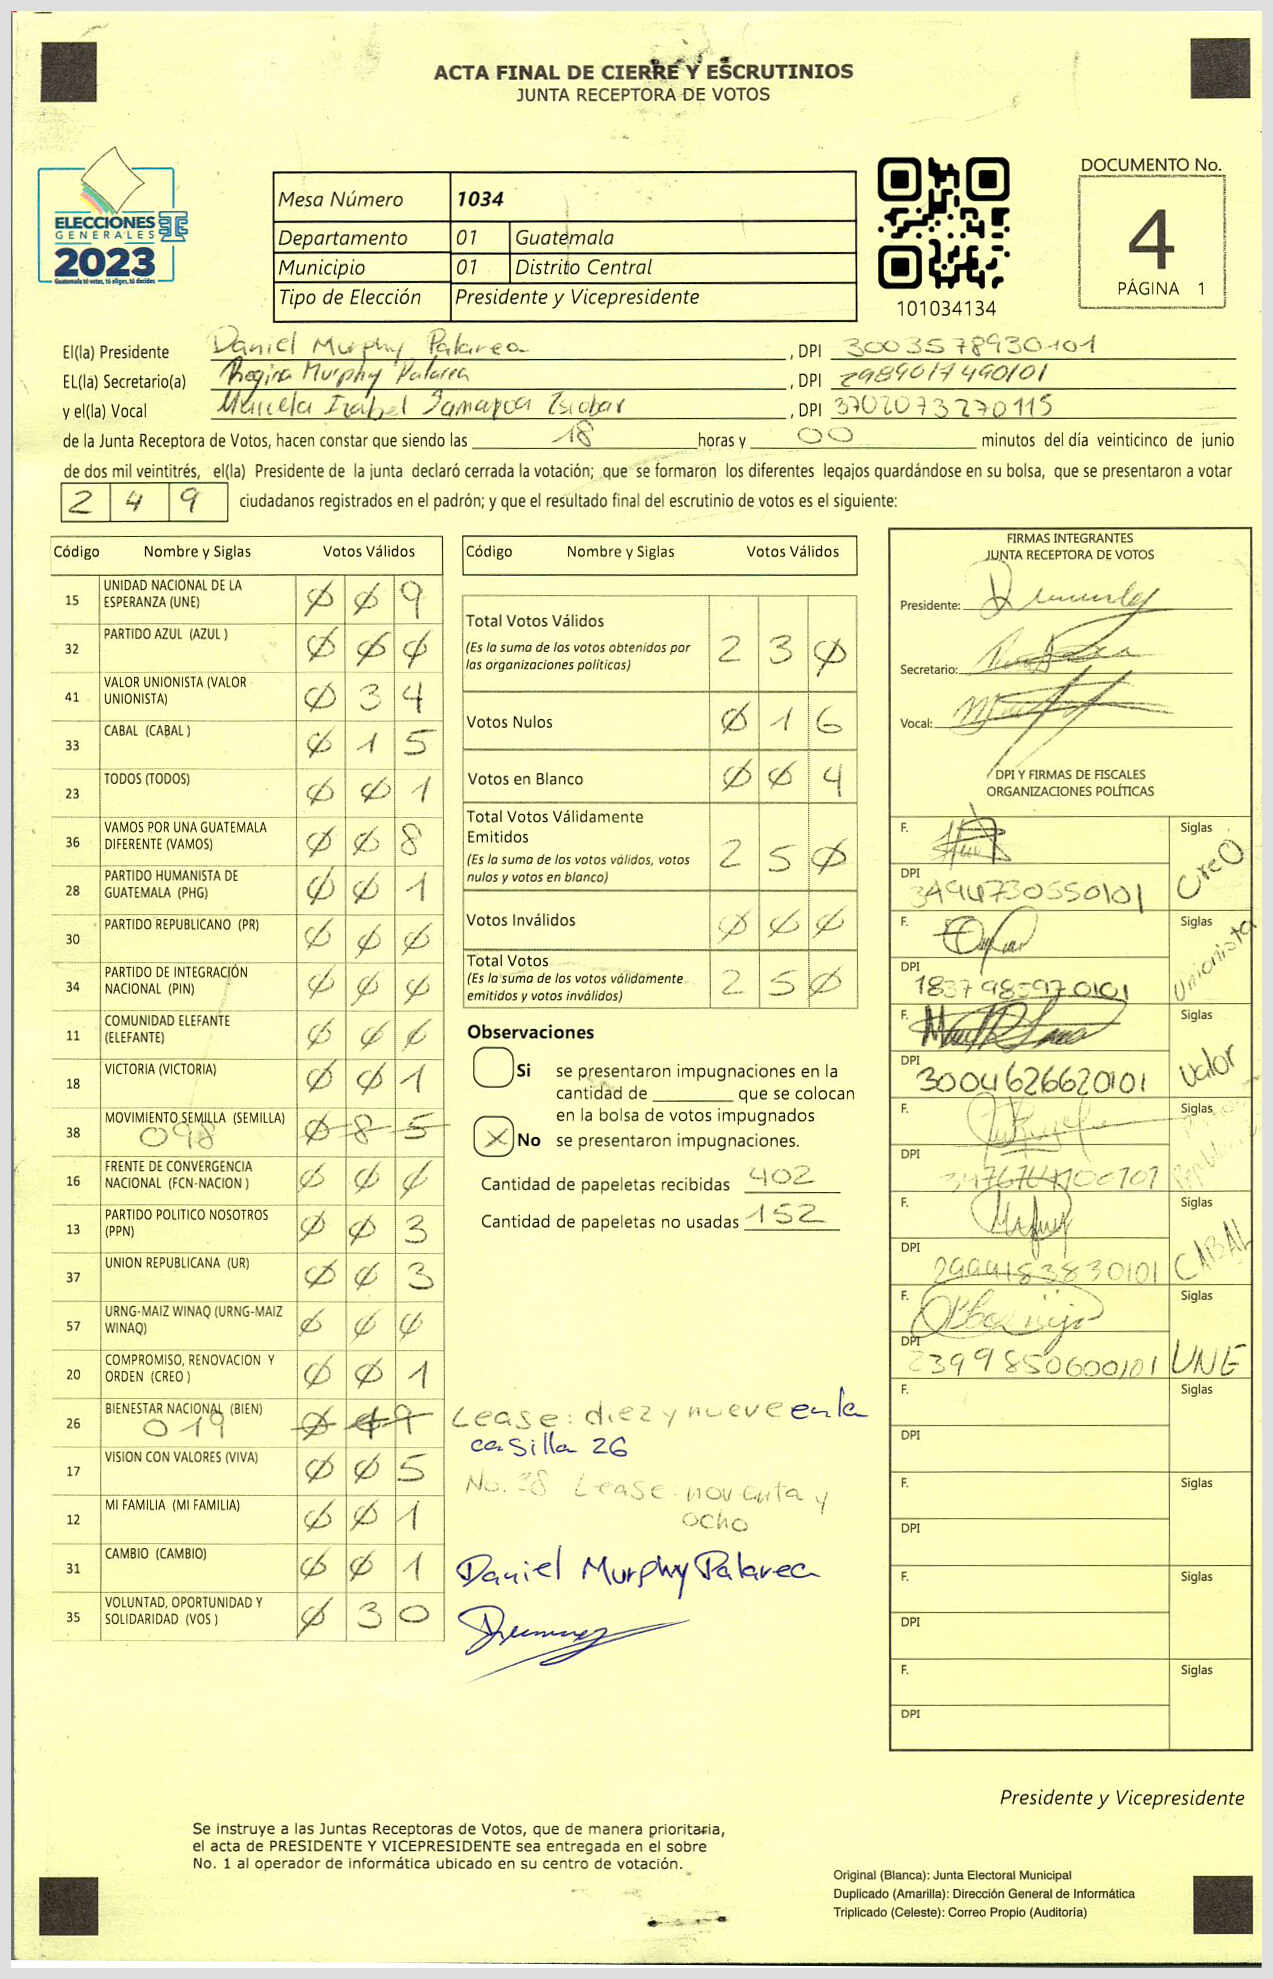 ACTA FINAL DE CIERRE Y ESCRUTINIOS
JUNTA RECEPTORA DE VOTOS
ELECCIONES
GENERALES
2023
Guatemala tú votas, tú eliges, tú decides
Mesa Número 1034
Departamento 01 Guatemala
Municipio 01 Distrito Central
Tipo de Elección Presidente y Vicepresidente
101034134
DOCUMENTO No.
4
PÁGINA 1
El(la) Presidente Daniel Murphy Palarea, DPI 3003578930101
EL(la) Secretario(a) Regina Murphy Palarea, DPI 2989017490101
y el(la) Vocal Izabel, DPI 3702073270115
de la Junta Receptora de Votos, hacen constar que siendo las 18 horas y 00 minutos del día veinticinco de junio
de dos mil veintitrés, el(la) Presidente de la junta declaró cerrada la votación; que se formaron los diferentes legajos quardándose en su bolsa, que se presentaron a votar
249 ciudadanos registrados en el padrón; y que el resultado final del escrutinio de votos es el siguiente:
Código Nombre y Siglas Votos Válidos
15 UNIDAD NACIONAL DE LA ESPERANZA (UNE) 0 0 9
32 PARTIDO AZUL (AZUL ) 0 0 0
41 VALOR UNIONISTA (VALOR UNIONISTA) 0 3 4
33 CABAL (CABAL ) 0 1 5
23 TODOS (TODOS) 0 0 1
36 VAMOS POR UNA GUATEMALA DIFERENTE (VAMOS) 0 0 8
28 PARTIDO HUMANISTA DE GUATEMALA (PHG) 0 0 1
30 PARTIDO REPUBLICANO (PR) 0 0 0
34 PARTIDO DE INTEGRACIÓN NACIONAL (PIN) 0 0 0
11 COMUNIDAD ELEFANTE (ELEFANTE) 0 0 0
18 VICTORIA (VICTORIA) 0 0 1
38 MOVIMIENTO SEMILLA (SEMILLA) 098 0 8 5
16 FRENTE DE CONVERGENCIA NACIONAL (FCN-NACION ) 0 0 0
13 PARTIDO POLITICO NOSOTROS (PPN) 0 0 3
37 UNION REPUBLICANA (UR) 0 0 3
57 URNG-MAIZ WINAQ (URNG-MAIZ WINAQ) 0 0 0
20 COMPROMISO, RENOVACION Y ORDEN (CREO ) 0 0 1
26 BIENESTAR NACIONAL (BIEN) 019
17 VISION CON VALORES (VIVA) 0 0 5
12 MI FAMILIA (MI FAMILIA) 0 0 1
31 CAMBIO (CAMBIO) 0 0 1
35 VOLUNTAD, OPORTUNIDAD Y SOLIDARIDAD (VOS ) 0 3 0
Código Nombre y Siglas Votos Válidos
Total Votos Válidos
(Es la suma de los votos obtenidos por
las organizaciones políticas)
2 3 0
Votos Nulos 0 1 6
Votos en Blanco 0 0 4
Total Votos Válidamente
Emitidos
(Es la suma de los votos válidos, votos
nulos y votos en blanco)
2 5 0
Votos Inválidos 0 0 0
Total Votos
(Es la suma de los votos válidamente
emitidos y votos inválidos)
2 5 0
Observaciones
Si se presentaron impugnaciones en la
cantidad de ________ que se colocan
en la bolsa de votos impugnados
X No se presentaron impugnaciones.
Cantidad de papeletas recibidas 402
Cantidad de papeletas no usadas 152
Lease: diez y nueve en la
casilla 26
No. 38 Lease noventa y
ocho
Daniel Murphy Palarea
FIRMAS INTEGRANTES
JUNTA RECEPTORA DE VOTOS
Presidente:
Secretario:
Vocal:
DPI Y FIRMAS DE FISCALES
ORGANIZACIONES POLÍTICAS
F. Siglas
DPI 3494730550101 CreO
F. Siglas
DPI 1837985970101 Unionista
F. Siglas
DPI 3004626620101 Valor
F. Siglas
DPI
F. Siglas
DPI 2994183830101 CABAL
F. Siglas
DPI 2399850600101 UNE
F. Siglas
DPI
F. Siglas
DPI
F. Siglas
DPI
F. Siglas
DPI
Presidente y Vicepresidente
Se instruye a las Juntas Receptoras de Votos, que de manera prioritaria,
el acta de PRESIDENTE Y VICEPRESIDENTE sea entregada en el sobre
No. 1 al operador de informática ubicado en su centro de votación.
Original (Blanca): Junta Electoral Municipal
Duplicado (Amarilla): Dirección General de Informática
Triplicado (Celeste): Correo Propio (Auditoría)